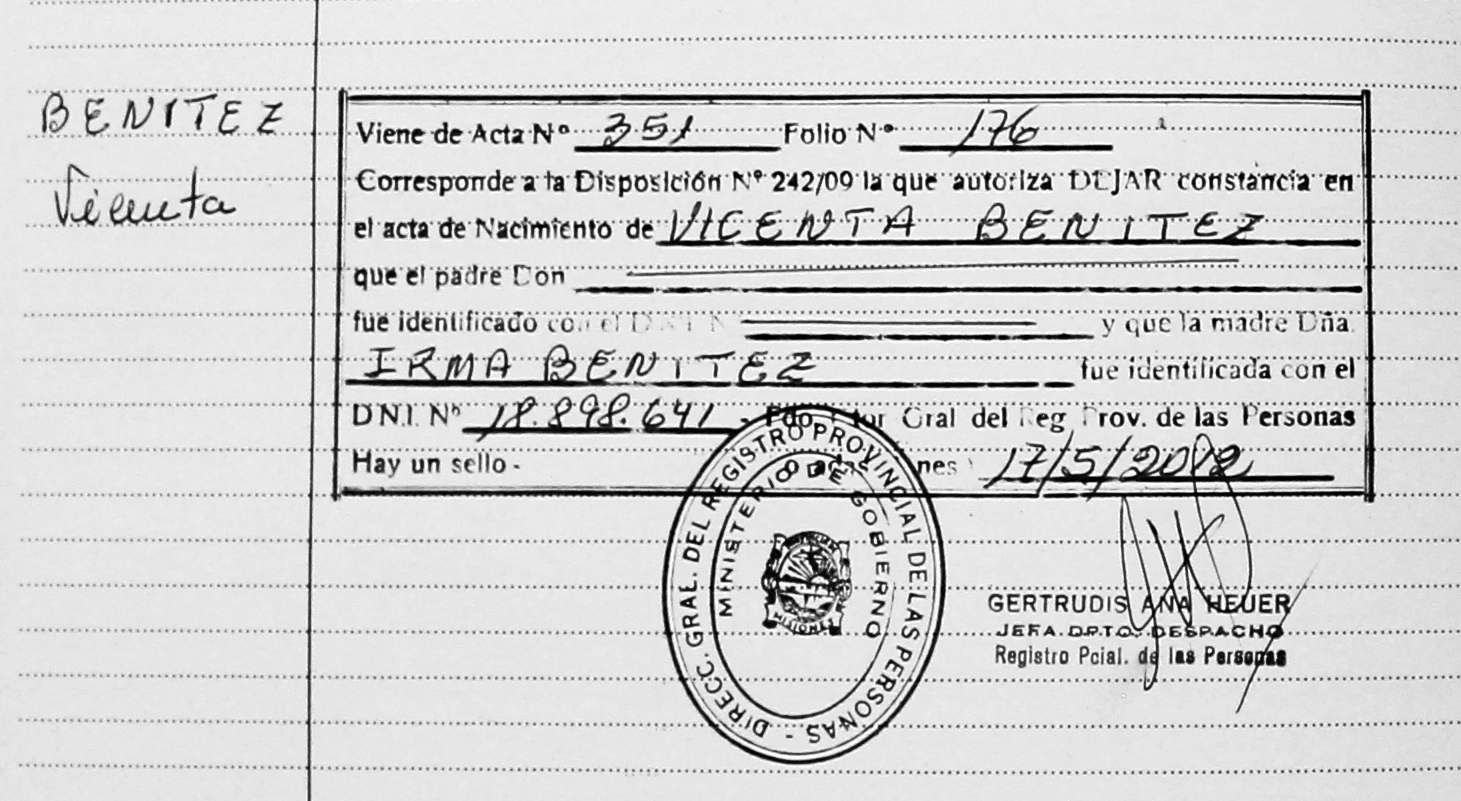 BENITEZ
Vicenta
Viene de Acta Nº 351 Folio Nº 176
Corresponde a la Disposición Nº 242/09 la que autoriza DEJAR constancia en
el acta de Nacimiento de VICENTA BENITEZ
que el padre Don
fue identificado con el D.N.I. N y que la madre Dña.
IRMA BENITEZ fue identificada con el
D.N.I. Nº 18.898.641 - Fdo Gral del Reg Prov. de las Personas
Hay un sello - 17/5/2012
DIRECC. GRAL. DEL REGISTRO PROVINCIAL DE LAS PERSONAS -
MINISTERIO DE GOBIERNO
MISIONES
GERTRUDIS ANA HEUER
JEFA DPTO. DESPACHO
Registro Pcial. de las Personas